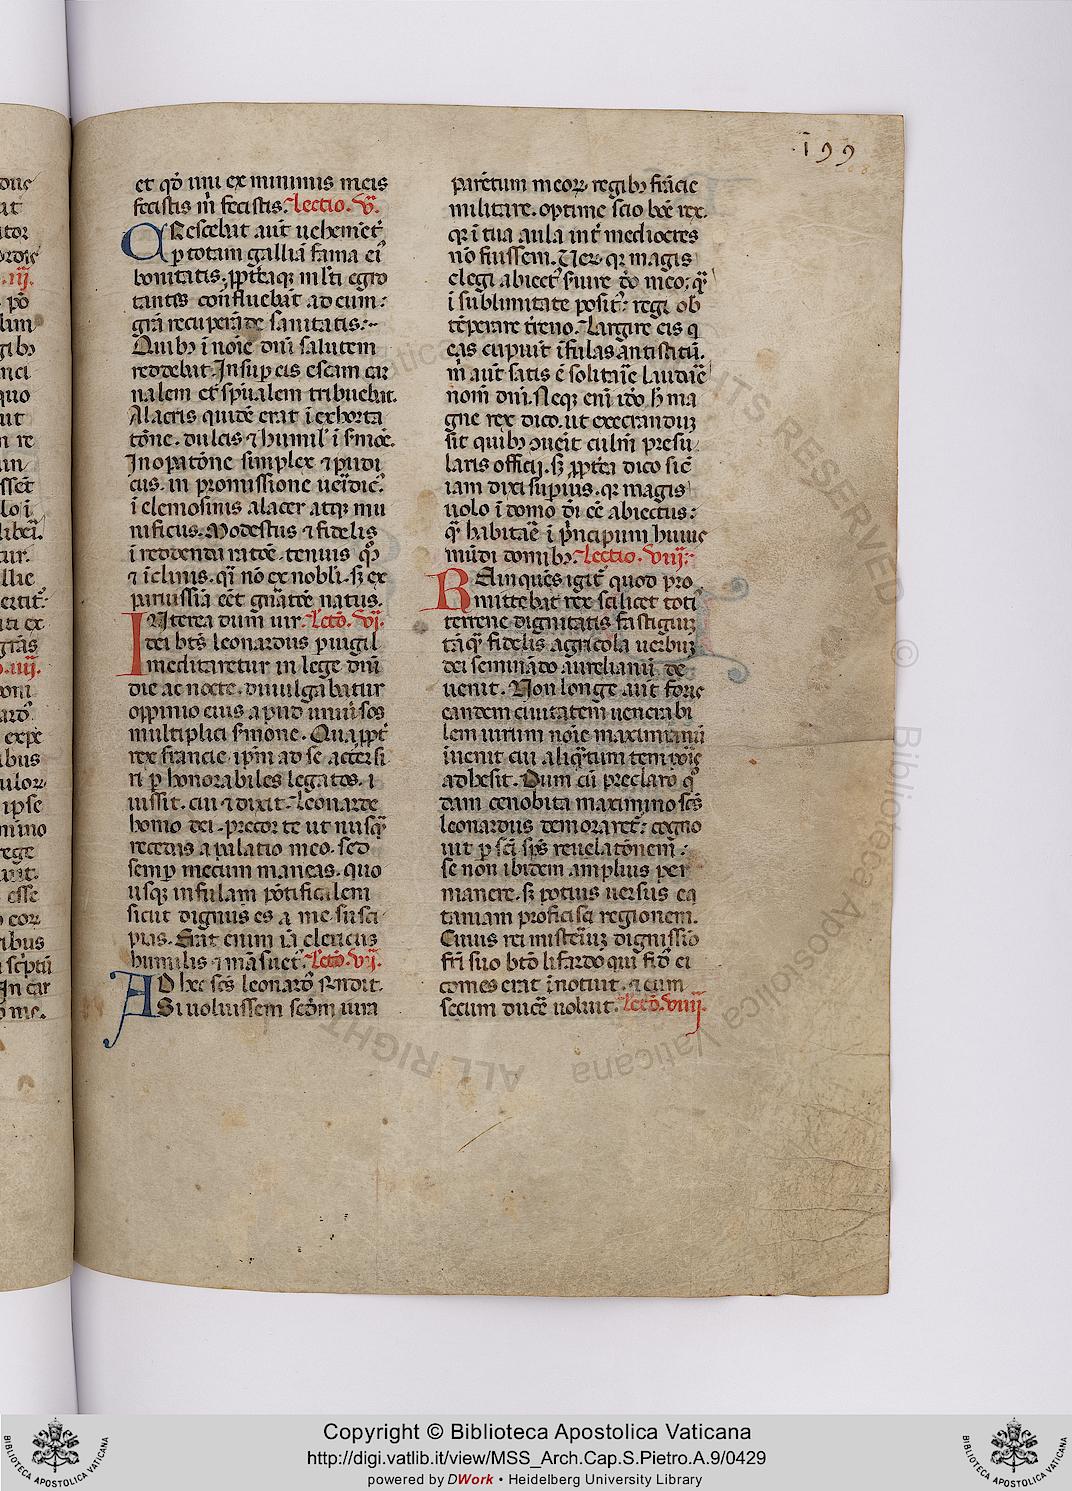 199
et qd' uni ex minimis meis
fecistis m̄ fecistis. Lectio .v̄.
Crescebat aut̄ uehem̄et̄
p̱ totam galliā fama ei'
bonitatis, p̱pt̄eaq̱ ml̄ti egro
tantes confluebāt ad eum:
grā recuperāde sanitatis:~
Quib; ī noīe dn̄i salutem
reddebat. Insup̱ eis escam car
nalem et sp̄ualem tribuebat.
Alacris quidē erat ī exhorta
tōne. dulcis ⁊ humil' ī sīmōe.
In op̱atōne simplex ⁊ pudi
cus. in promissione ueīdic'.
ī elemosinis alacer atq; mu
nificus. Modestus ⁊ fidelis
ī reddenda ratōe. tenuis qͦ;
⁊ īclinis. qͣi nō ex nobli. s; ex
paruissīa cēt gn̄atōe natus.
Interea dum uir. Lectō. vī.
dei bt̄s leonardus p̱uigil
meditaretur in lege dn̄i
die ac nocte. diuulgabatur
oppinio eius apud uniūsos
multiplici sīmone. Quapp̱t̄
rex francie ip̄m ad se accersi
ri p̱ honorabiles legatos. i
uissit. cui ⁊ dixit. Leonarde
homo dei. precor te ut nusqͣ
recedas a palatio meo. sed
semp̱ mecum maneas. quo
usq; infulam pōtificalem
sicut dignus es a me susci
pias. Erat enim iā clericus
humilis ⁊ māsuet'. Lectō. vīī.
Ad hec sc̄s leonard' rn̄dit.
Si uoluissem scd̄m iura
parētum meoꝝ. regib; frācie
militare. optime scio bōe rex.
qꝛ ī tua aula int̄ mediocres
nō fuissem. Ueꝝ qꝛ magis
elegi abiect' s̄uire dō meo. qͣ
ī sublimitate posit'. regi ob
tēperare t̄reno. Largire eis q
eas cupiūt īfulas antistitū.
m̄ aut̄ satis ē solitarīe laudāe
nom̄ dn̄i. Neq; enī idō h̄ ma
gne rex dico. ut execranduȝ
sit quib; ɔuēit culm̄ presu
laris officij. s; p̱pt̄ea dico sic̄
iam dixi superius. qꝛ magis
uolo ī domo dī cē abiectus:
qͣ habitāe ī p̄ncipum huius
mūdi domib;. Lectio. vīīī.
Relinquēs igit̄ quod pro
mittebat rex scilicet toti'
terrene dignitatis fastigiuȝ
tāqͣ fidelis agricola uerbuȝ
dei seminādo aurelianū de
uenit. Non longe aut̄ foris
eandem ciuitatem̄ uenerabi
lem uirum noīe maximinū
īuenit cui aliqͣtum tempoīs
adhesit. Dum cū preclaro qͦ
dam cenobita maximino sc̄s
leonardus demoraret̄: cogno
uit p̱ sc̄i sp̄s reuelatōnem:
se non ibidem amplius per
manere. s; potius uersus eq
taniam proficisci regionem.
Cuius rei mistēiuȝ dignissīo
fr̄i suo bt̄o lifardo qui fid' ei
comes erat īnotuit. ⁊ cum
secum ducē uoluit. Lectō. vīīīj.
© Biblioteca Apostolica Vaticana ALL RIGHTS RESERVED
Copyright © Biblioteca Apostolica Vaticana
http://digi.vatlib.it/view/MSS_Arch.Cap.S.Pietro.A.9/0429
powered by DWork • Heidelberg University Library
BIBLIOTECA APOSTOLICA VATICANA
BIBLIOTECA APOSTOLICA VATICANA